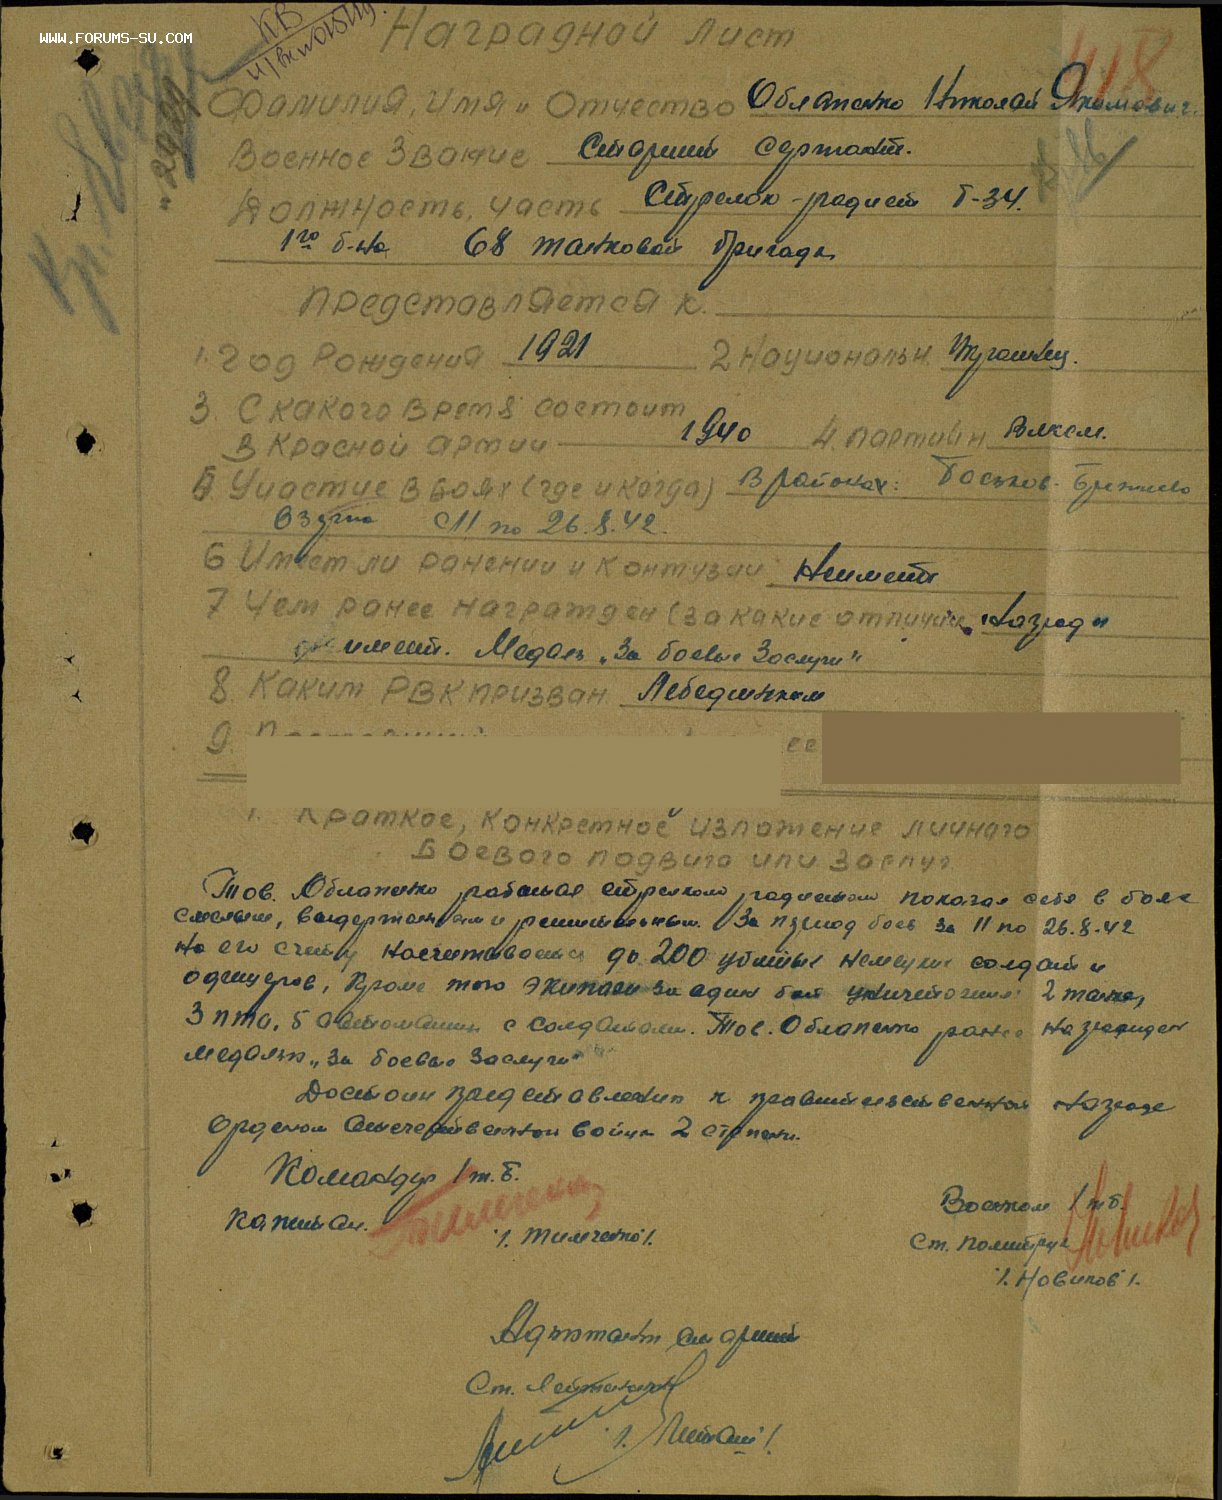 WWW.FORUMS-SU.COM
КВ
Наградной лист
418
Фамилия, имя и Отчество Облапенко Николай Якимович.
Военное Звание Старший сержант.
Должность, часть Стрелок-радист Т-34.
1го б-на 68 танковой бригады
Представляется к.
1. Год Рождения 1921 2 Национальн.
3. С какого врем. состоит
в Красной армии 1940 4. партийн. Влксм.
5 Участие в боях (где и когда) В районах:
с 11 по 26.8.42.
6 Имеет ли ранении и контузии Неимеет
7 Чем ранее награжден (за какие отличия) Награды
имеет. Медаль „За боевые Заслуги"
8 Каким РВК призван Лебединским
9.
ее
1. Краткое, конкретное изложение личного
Боевого подвига или заслуг
Тов. Облапенко работая стрелком радистом показал себя в боях
смелым, выдержанным и решительным. За период боев За 11 по 26.8.42
На его счету насчитывается до 200 убитых немецких солдат и
офицеров, Кроме того экипажем за один бой уничтожено 2 танка,
3 пто, 5 автомашин с солдатами. Тов. Облапенко ранее награжден
медалью „За боевые Заслуги"
Достоин представления к правительственной награде
Орденом Отечественной войны 2 степени.
Командир 1 т.б.
Капитан.
/. Тимченко /.
Военком 1 тб.
Ст. политрук
/. Новиков /.
Адъютант старший
Ст. Лейтенант